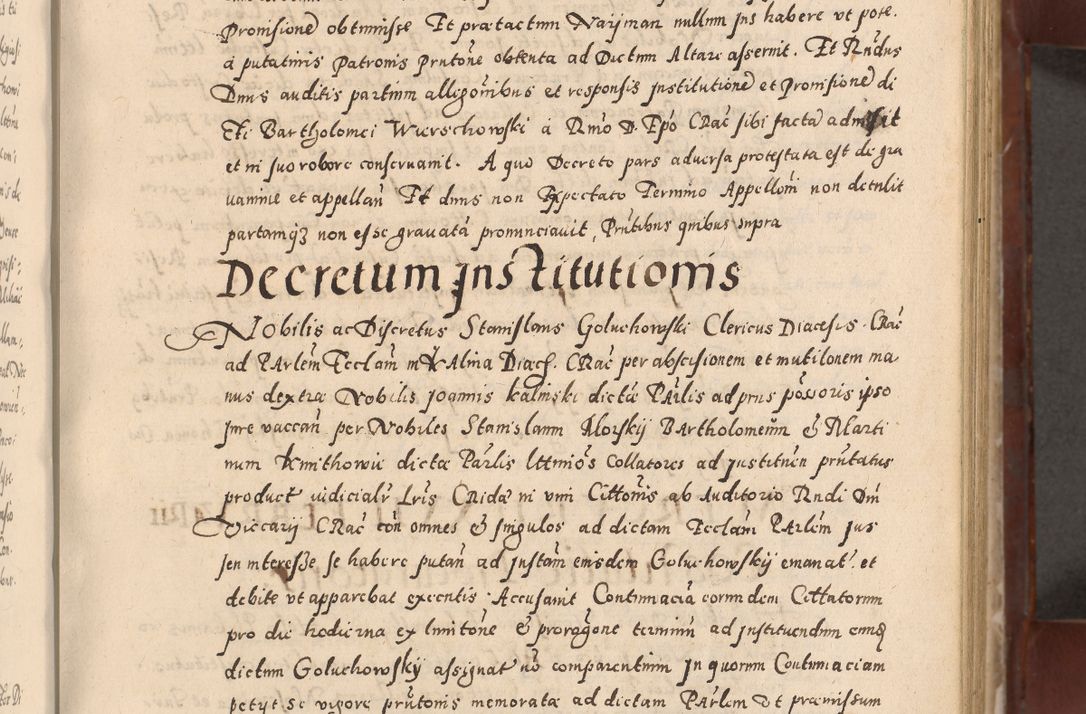 Promisione obtinuisse Et prætactum Naijman nullum Jus habere vt pote.
à putatiuis Patronis Pntone obtenta ad Dictum Altare asseruit. Et Rndus
Dnus auditis partium alligonibus et responsis Institutione et Promisione di
cti Bartholomei Wierschowski à Rmo D. Epo CRac sibi facta admisit
et in suo robore conseruauit. A quo Decreto pars aduersa protestata est de gra
uamine et appellan Et dnus non Expectato Termino Appelloni non detulit
partamq3 non esse gravatā pronunciauit, Pntibus quibus supra
Decretum Institutionis
Nobilis ac Discretus Stanislaus Goluchowski Clericus Diacesis. CRac
ad PArlem Ecclam in Alma Diæces. CRac per abscisionem et mutilonem ma
nus dextræ Nobilis Joannis Kalinski dictæ PArlis ad prus possoris ipso
Jure vaccan per Nobiles Stanislaum Morskij BArtholomeum & Marti
num Kmithowie dictæ Parlis lttmios Collatores ad Justituen pntatus
product iudicialr Lris CRida in vim Cittonis ab Auditorio Rndi Dni
Viccarij CRac con omnes & singulos ad dictam Ecclam PArlem Jus
seu interesse se habere putan ad Justam eiusdem Goluchowskij emanat. et
debite vt apparebat executis. Accusauit Contumaciā eorundem Cittatorum
pro die hodierna ex limitone & prorogone termini ad Justituendum eunq
dictum Goluchowskij assignat no comparentium In quorum Contumaciam
petijt se vigore pntonis memoratæ ad dictam PArlem vt præmissum